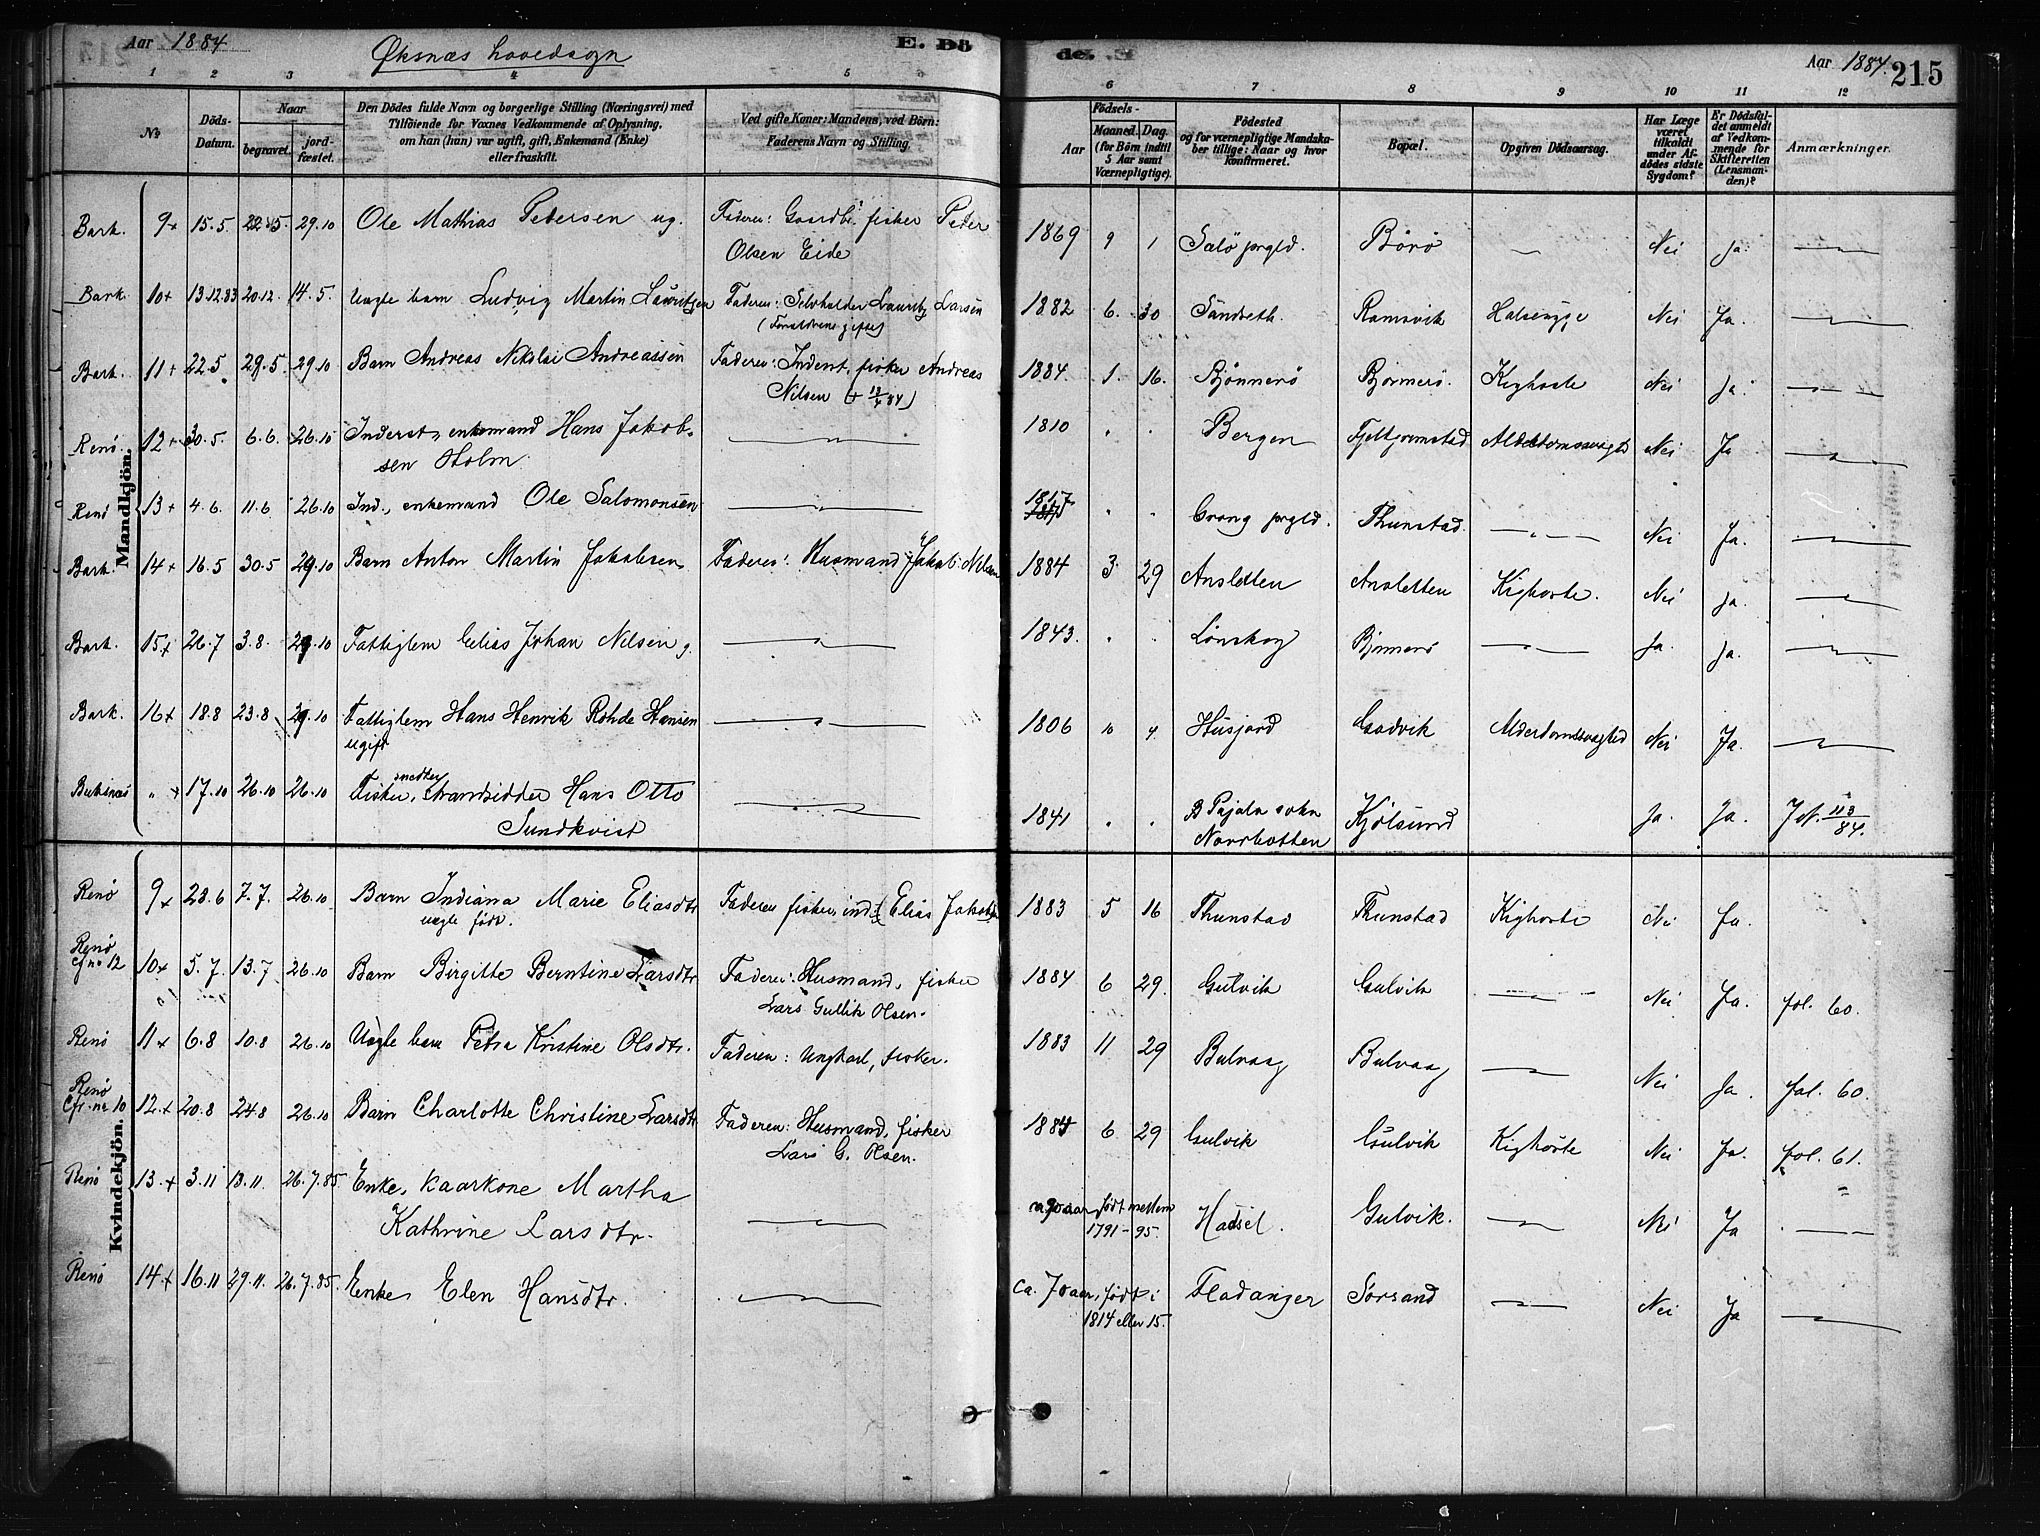 Aar 1884 Øksnæs hovedsogn E. Dö de. Aar 1884. 215
1 2 3 4 5 6 6 7 8 9 10 11 12
No Döds-Datum. Naar begravet. jord-fæstet. Den Dödes fulde Navn og borgerlige Stilling (Næringsvei) med Tilföiende for Voxnes Vedkommende af Oplysning, om han (hun) var ugift, gift, Enkemand (Enke) eller fraskilt. Ved gifte Koner: Mandens, ved Börn: Faderens Navn og Stilling. Aar Födsels- Maaned. Dag. (for Börn indtil 5 Aar samt Værnepligtige). Födested og for værnepligtige Mandskaber tillige: Naar og hvor konfirmeret. Bopæl. Opgiven Dödsaarsag. Har Læge været tilkaldt under Afdödes sidste Sygdom? Er Dödsfaldet anmeldt af Vedkommende for Skifteretten (Lensmanden)? Anmærkninger.
Mandkjön.
Bark. 9+ 15.5. 22.5. 29.10 Ole Mathias Pedersen ug. Faderen: Gaardbr. fisker Peder 1869 9 1 Salö prgld. Börö Nei Ja.
Olsen Eide
Bark. 10+ 13.12.83 20.12. 14.5. Uegte barn Ludvig Martin Lauritzen Faderen: Selvholder Lauritz Larsen 1882 6. 30 Sandseth Ramsvik Halssyge Nei Ja.
(Forældrene giftes)
Bark. 11+ 22.5. 29.5. 29.10 Barn Andreas Nikolai Andreassen Faderen: Inderst, fisker Andreas 1884. 1. 16. Bjönnerö Bjönnerö. Kighoste Nei Ja
Nilsen (+ 13/4 84)
Renö. 12+ 30.5. 6.6. 26.10 Inderst, enkemand Hans Jakob- 1810 " " Bergen Alderdomssvaghed Nei Ja
sen Holm.
Renö 13+ 4.6. 11.6 26.10 Ind., enkemand Ole Salomonsen 1817 " " Grong prgld. Thunstad. Nei Ja.
Bark. 14+ 16.5 30.5 29.10 Barn Anton Martin Jakobsen. Faderen: Husmand Jakob Nilsen 1884 3 29 Ansletten Ansletten Kighoste. Nei Ja.
Bark. 15+ 26.7 3.8. 29.10 Fattiglem Elias Johan Nilsen g. 1843. " " Lönskog Bjönnerö Ja. Ja.
Bark. 16+ 18.8 23.8 29.10 Fattiglem Hans Henrik Rohde Hansen 1806 10 4 Husjord Alderdomssvaghed Nei Ja.
ugift
Buksnæs " + 17.10 26.10 26.10 Fisker, strandsidder Hans Otto 1841 " " Pajala sokn Kjölsund Ja. Ja. JN. 113/84.
Sundkvist Norrbotten
Kvindekjön.
Renö 9+ 28.6 7.7. 26.10 Barn Indiana Marie Eliasdtr Faderen fisker, ind. Elias 1883 5 16 Thunstad Thunstad Kighoste Nei Ja.
uegte födt.
Renö cf no 12 10+ 5.7. 13.7 26.10 Barn Birgitte Berntine Larsdtr Faderen: Husmand, fisker 1884 6 29. Gulvik Gulvik Nei Ja. fol. 60.
Lars Gullik Olsen.
Renö 11+ 6.8 10.8 26.10 Uegte barn Petra Kristine Olsdtr. Faderen: Ungkarl, fisker. 1883 11 29 Bulvaag Bulvaag Nei Ja. fol. 60.
Renö Cfr. nr 10 12+ 20.8 24.8 26.10 Barn Charlotte Christine Larsdtr Faderen: Husmand, fisker 1884 6 29 Gulvik Gulvik Kighoste Nei Ja. fol. 61.
Lars G. Olsen.
Renö 13+ 3.11 13.11. 26.7.85 Enke, kaarkone Martha 90 aar, födt mellem Hadsel. Gulvik. Nei Ja
Kathrine Larsdtr. 1791-95.
Renö 14+ 16.11 29.11. 26.7.85. Enke, Elen Hansdtr. ca. 70 aar, födt i Fladanger Sörsand Nei Ja
1814 eller 15.